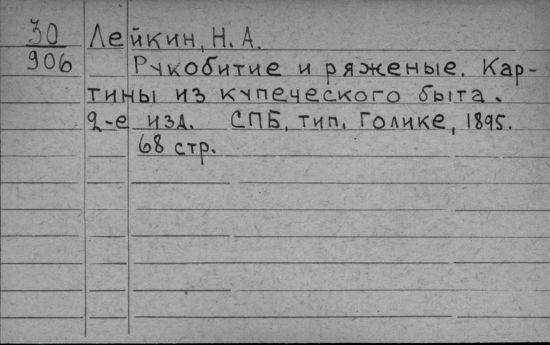 30 Лейкин, Н. А.
906 Рукобитие и ряженые. Кар-
тины из купеческого быта.
2-е изд. СПБ, тип. Голике, 1895.
68 стр.